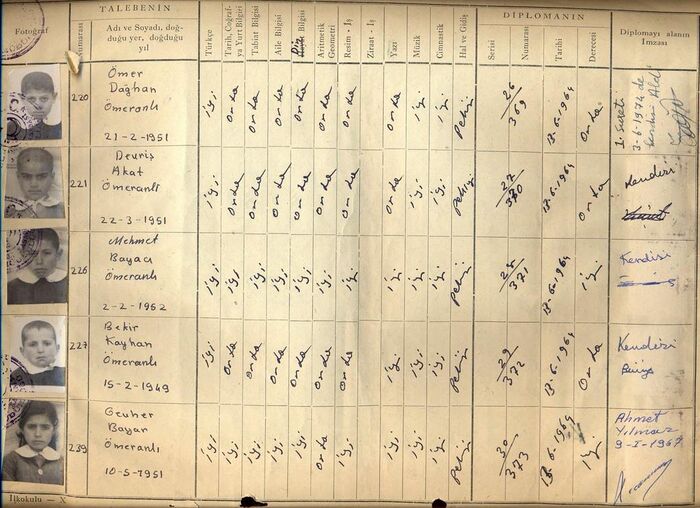 TALEBENİN
DİPLOMANIN
Fotoğraf
Numarası
Adı ve Soyadı, doğ-
duğu yer, doğduğu
yıl
Türkçe
Tarih, Coğraf-
ya Yurt Bilgisi
Tabiat Bilgisi
Aile Bilgisi
Din Bilgisi
Aritmetik
Geometri
Resim - İş
Ziraat - İş
Yazı
Müzik
Cimnastik
Hal ve Gidiş
Serisi
Numarası
Tarihi
Derecesi
Diplomayı alanın
İmzası
220
Ömer
Dağhan
Ömeranlı
21-2-1951
iyi orta orta orta orta orta orta orta iyi iyi Pekiyi 26/369 13-6-1964 orta
1. Sureti
3-6-1974 de
kendisi Aldı
221
Deuriş
Akat
Ömeranlı
22-3-1951
iyi orta orta orta orta orta orta orta iyi iyi Pekiyi 27/370 13-6-1964 orta
Kendisi
226
Mehmet
Bayacı
Ömeranlı
2-2-1962
iyi iyi iyi iyi iyi iyi iyi iyi iyi iyi Pekiyi 371 13-6-1964 iyi
Kendisi
227
Bekir
Kayhan
Ömeranlı
15-2-1949
iyi orta orta orta orta orta orta iyi iyi iyi Pekiyi 29/372 13-6-1964 orta
Kendisi
239
Geuher
Bayar
Ömeranlı
10-5-1951
iyi iyi iyi iyi iyi orta iyi iyi iyi iyi Pekiyi 30/373 13-6-1964 iyi
Ahmet
Yılmaz
9-I-1967
İlkokulu — X